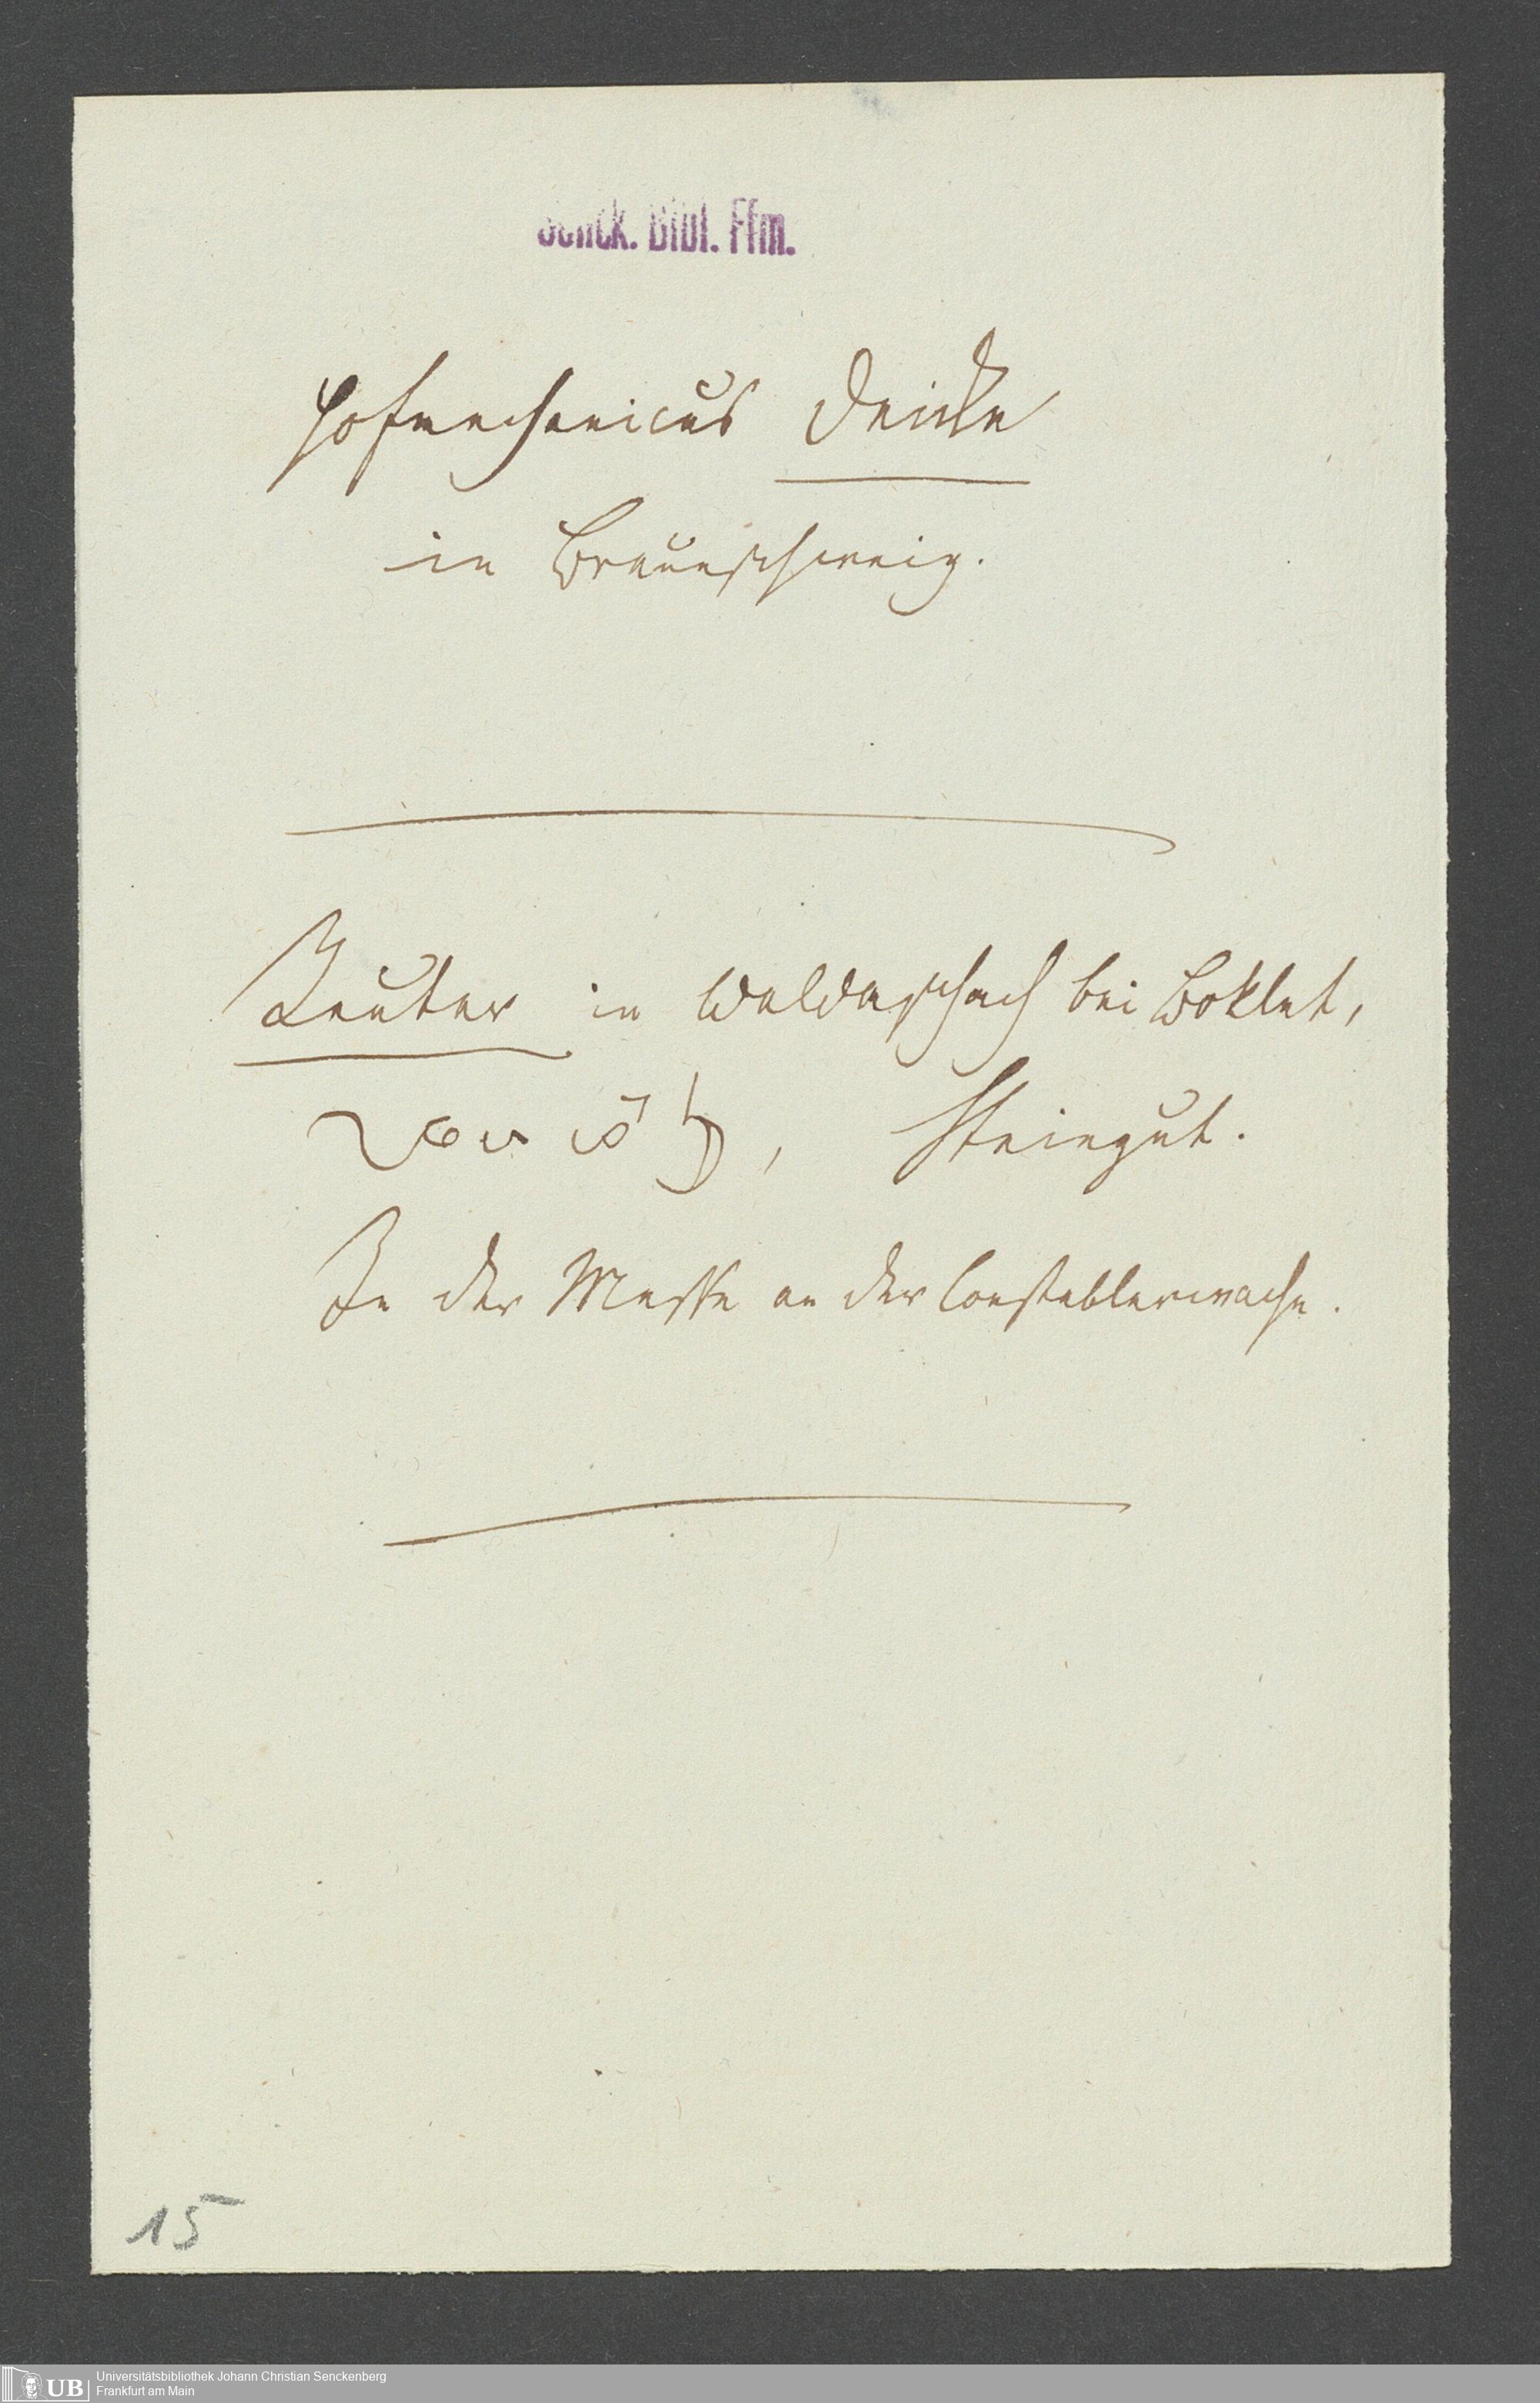 Senck. Bibl. Ffm.
Hofmechanicus Deicke
in Braunschweig.
Reuter in Waldaschach bei Boklet,
Steingut.
In der Messe an der Constablerwache.
15
UB Universitätsbibliothek Johann Christian Senckenberg
Frankfurt am Main